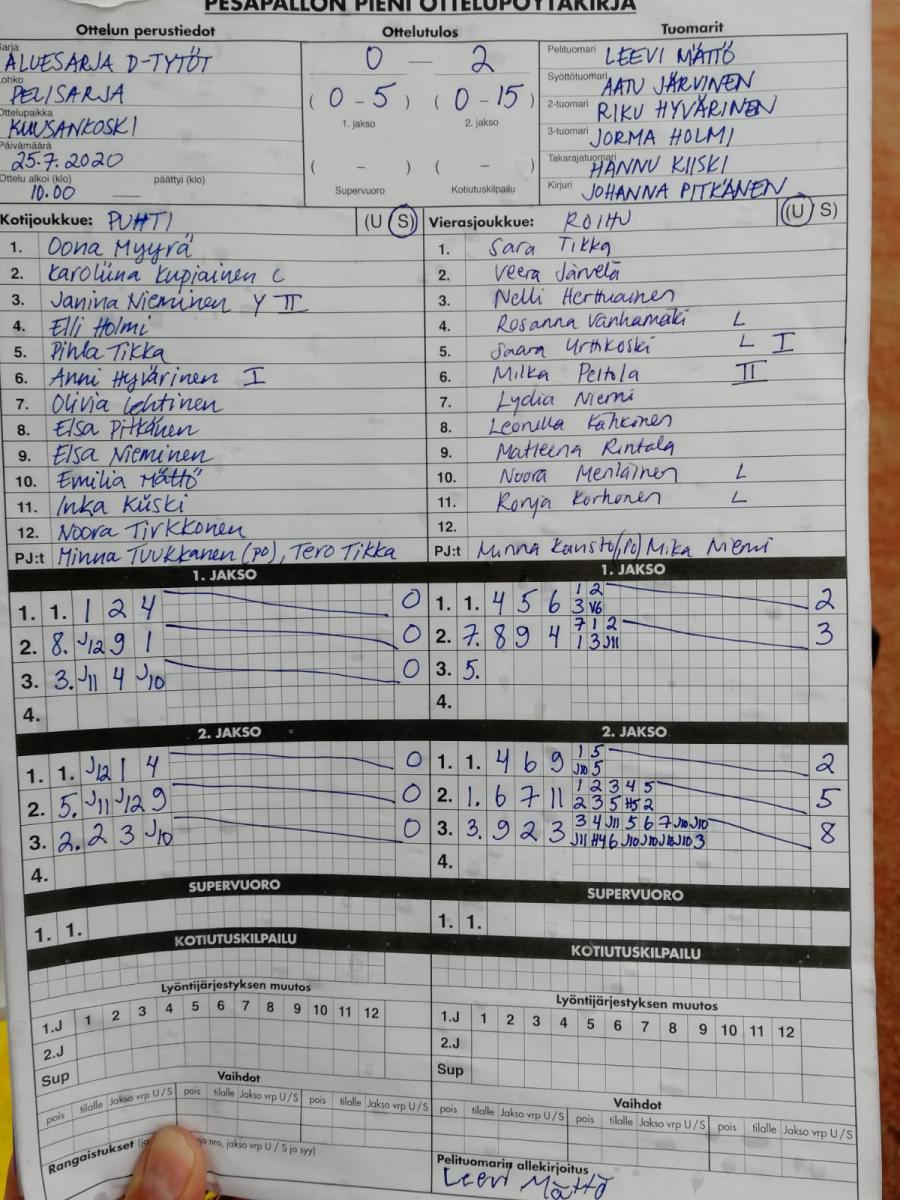 PESÄPALLON PIENI OTTELUPÖYTÄKIRJA
Ottelun perustiedot
Sarja
ALUESARJA D-TYTÖT
Lohko
PELISARJA
Ottelupaikka
KUUSANKOSKI
Päivämäärä
25.7.2020
Ottelu alkoi (klo) päättyi (klo)
10.00
Ottelutulos
0 — 2
( 0 - 5 ) ( 0 - 15 )
1. jakso 2. jakso
( - ) ( - )
Supervuoro Kotiutuskilpailu
Tuomarit
Pelituomari LEEVI MÄTTÖ
Syöttötuomari AATU JÄRVINEN
2-tuomari RIKU HYVÄRINEN
3-tuomari JORMA HOLMI
Takarajatuomari HANNU KIISKI
Kirjuri JOHANNA PITKÄNEN
Kotijoukkue: PUHTI (U S)
1. Oona Myyrä
2. Karoliina Kupiainen C
3. Janina Nieminen Y II
4. Elli Holmi
5. Pihla Tikka
6. Anni Hyvärinen I
7. Olivia Lehtinen
8. Elsa Pitkänen
9. Elsa Nieminen
10. Emilia Mättö
11. Inka Kiiski
12. Noora Tirkkonen
PJ:t Minna Tuukkanen (PO), Tero Tikka
Vierasjoukkue: ROIHU (U/S)
1. Sara Tikka
2. Veera Järvelä
3. Nelli Herttuainen
4. Rosanna Vanhamäki L
5. Saara Urthkoski L I
6. Milka Peltola II
7. Lydia Niemi
8. Leonilla Kähkönen
9. Matleena Rintala
10. Noora Meriläinen L
11. Ronja Korhonen L
12.
PJ:t Minna Kansto (PO) Mika Niemi
1. JAKSO
1. 1. 1 2 4 0
2. 8. J12 9 1 0
3. 3. J11 4 J10 0
4.
2. JAKSO
1. 1. J12 1 4 0
2. 5. J11 J12 9 0
3. 2. 2 3 J10 0
4.
SUPERVUORO
1. 1.
KOTIUTUSKILPAILU
Lyöntijärjestyksen muutos
1.J 1 2 3 4 5 6 7 8 9 10 11 12
2.J
Sup
Vaihdot
pois tilalle Jakso vrp U/S pois tilalle Jakso vrp U/S pois tilalle Jakso vrp U/S
Rangaistukset nro, jakso vrp U/S ja syy)
1. JAKSO
1. 1. 4 5 6 1 2 2
3 V6
2. 7. 8 9 4 7 1 2 3
1 3 J11
3. 5.
4.
2. JAKSO
1. 1. 4 6 9 1 5 2
J10 5
2. 1. 6 7 11 1 2 3 4 5 5
2 3 5 H5 2
3. 3. 9 2 3 3 4 J11 5 6 7 J10 J10 8
J11 H4 6 J10 J10 J10 J10 3
4.
SUPERVUORO
1. 1.
KOTIUTUSKILPAILU
Lyöntijärjestyksen muutos
1.J 1 2 3 4 5 6 7 8 9 10 11 12
2.J
Sup
Vaihdot
pois tilalle Jakso vrp U/S pois tilalle Jakso vrp U/S pois tilalle Jakso vrp U/S
Pelituomarin allekirjoitus
Leevi Mättö